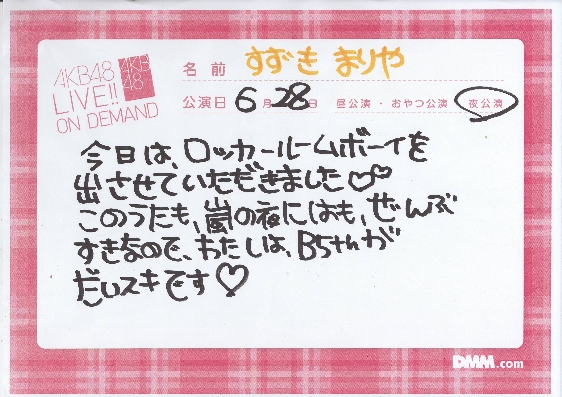 AKB48
LIVE!!
ON DEMAND
AKB
48
名前 すずき まりや
公演日 6月28日 昼公演・おやつ公演 夜公演
今日は、ロッカールームボーイを
出させていただきました♡♡
このうたも、嵐の夜にはも、ぜんぶ
すきなので、わたしは、B5thが
だいスキです♡
DMM.com